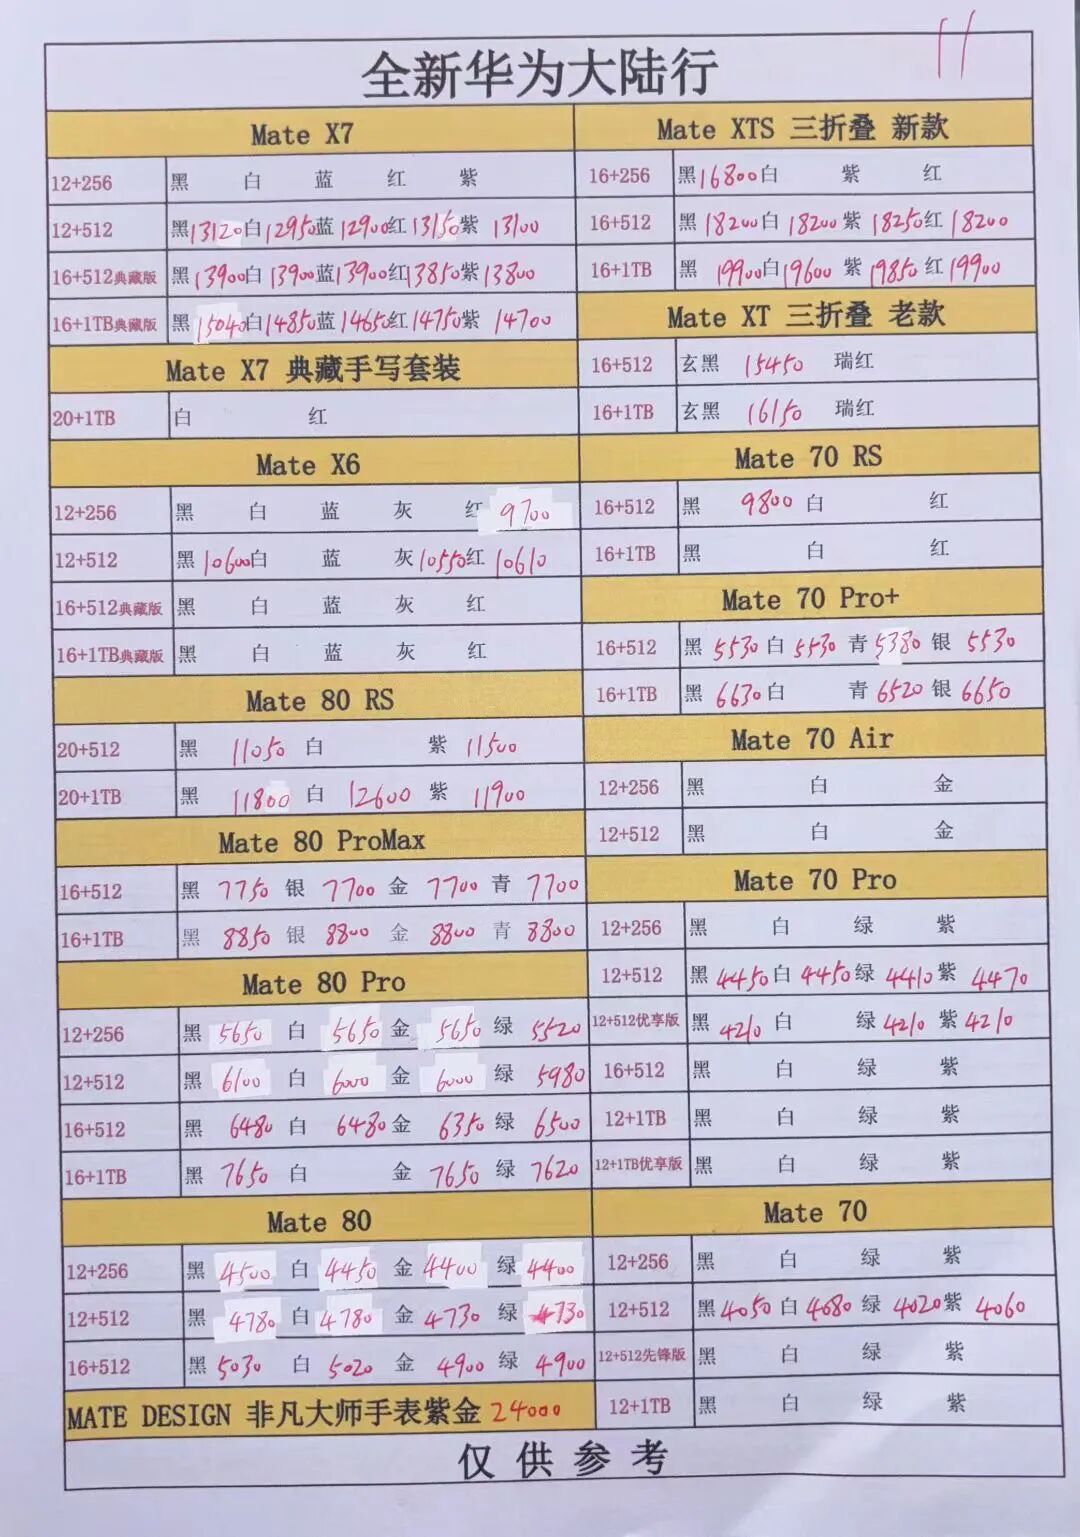 11
全新华为大陆行
Mate X7
12+256 黑 白 蓝 红 紫
12+512 黑13120白12950蓝12900红13150紫 13100
16+512典藏版 黑13900白13900蓝13900红13850紫13800
16+1TB典藏版 黑15040白14850蓝14650红14750紫 14700
Mate X7 典藏手写套装
20+1TB 白 红
Mate X6
12+256 黑 白 蓝 灰 红 9700
12+512 黑10600白 蓝 灰10550红10610
16+512典藏版 黑 白 蓝 灰 红
16+1TB典藏版 黑 白 蓝 灰 红
Mate 80 RS
20+512 黑 11050 白 紫 11500
20+1TB 黑 11800 白 12600 紫 11900
Mate 80 ProMax
16+512 黑 7750 银 7700 金 7700 青 7700
16+1TB 黑 8850 银 8800 金 8800 青 8800
Mate 80 Pro
12+256 黑 5650 白 5650 金 5650 绿 5520
12+512 黑 6100 白 6000 金 6000 绿 5980
16+512 黑 6480 白 6480 金 6350 绿 6500
16+1TB 黑 7650 白 金 7650 绿 7620
Mate 80
12+256 黑 4500 白 4450 金 4400 绿 4400
12+512 黑 4780 白 4780 金 4730 绿 4730
16+512 黑 5030 白 5020 金 4900 绿 4900
MATE DESIGN 非凡大师手表紫金 24000
Mate XTS 三折叠 新款
16+256 黑16800白 紫 红
16+512 黑 18200白 18200紫 18250红 18200
16+1TB 黑 19900白19600 紫 19850红 19900
Mate XT 三折叠 老款
16+512 玄黑 15450 瑞红
16+1TB 玄黑 16150 瑞红
Mate 70 RS
16+512 黑 9800 白 红
16+1TB 黑 白 红
Mate 70 Pro+
16+512 黑 5530 白 5530 青 5380 银 5530
16+1TB 黑 6630 白 青 6520 银 6650
Mate 70 Air
12+256 黑 白 金
12+512 黑 白 金
Mate 70 Pro
12+256 黑 白 绿 紫
12+512 黑 4450白 4450绿 4410紫 4470
12+512优享版 黑 4210 白 绿 4210 紫 4210
16+512 黑 白 绿 紫
12+1TB 黑 白 绿 紫
12+1TB优享版 黑 白 绿 紫
Mate 70
12+256 黑 白 绿 紫
12+512 黑4050 白 4080 绿 4020紫 4060
12+512先锋版 黑 白 绿 紫
12+1TB 黑 白 绿 紫
仅供参考